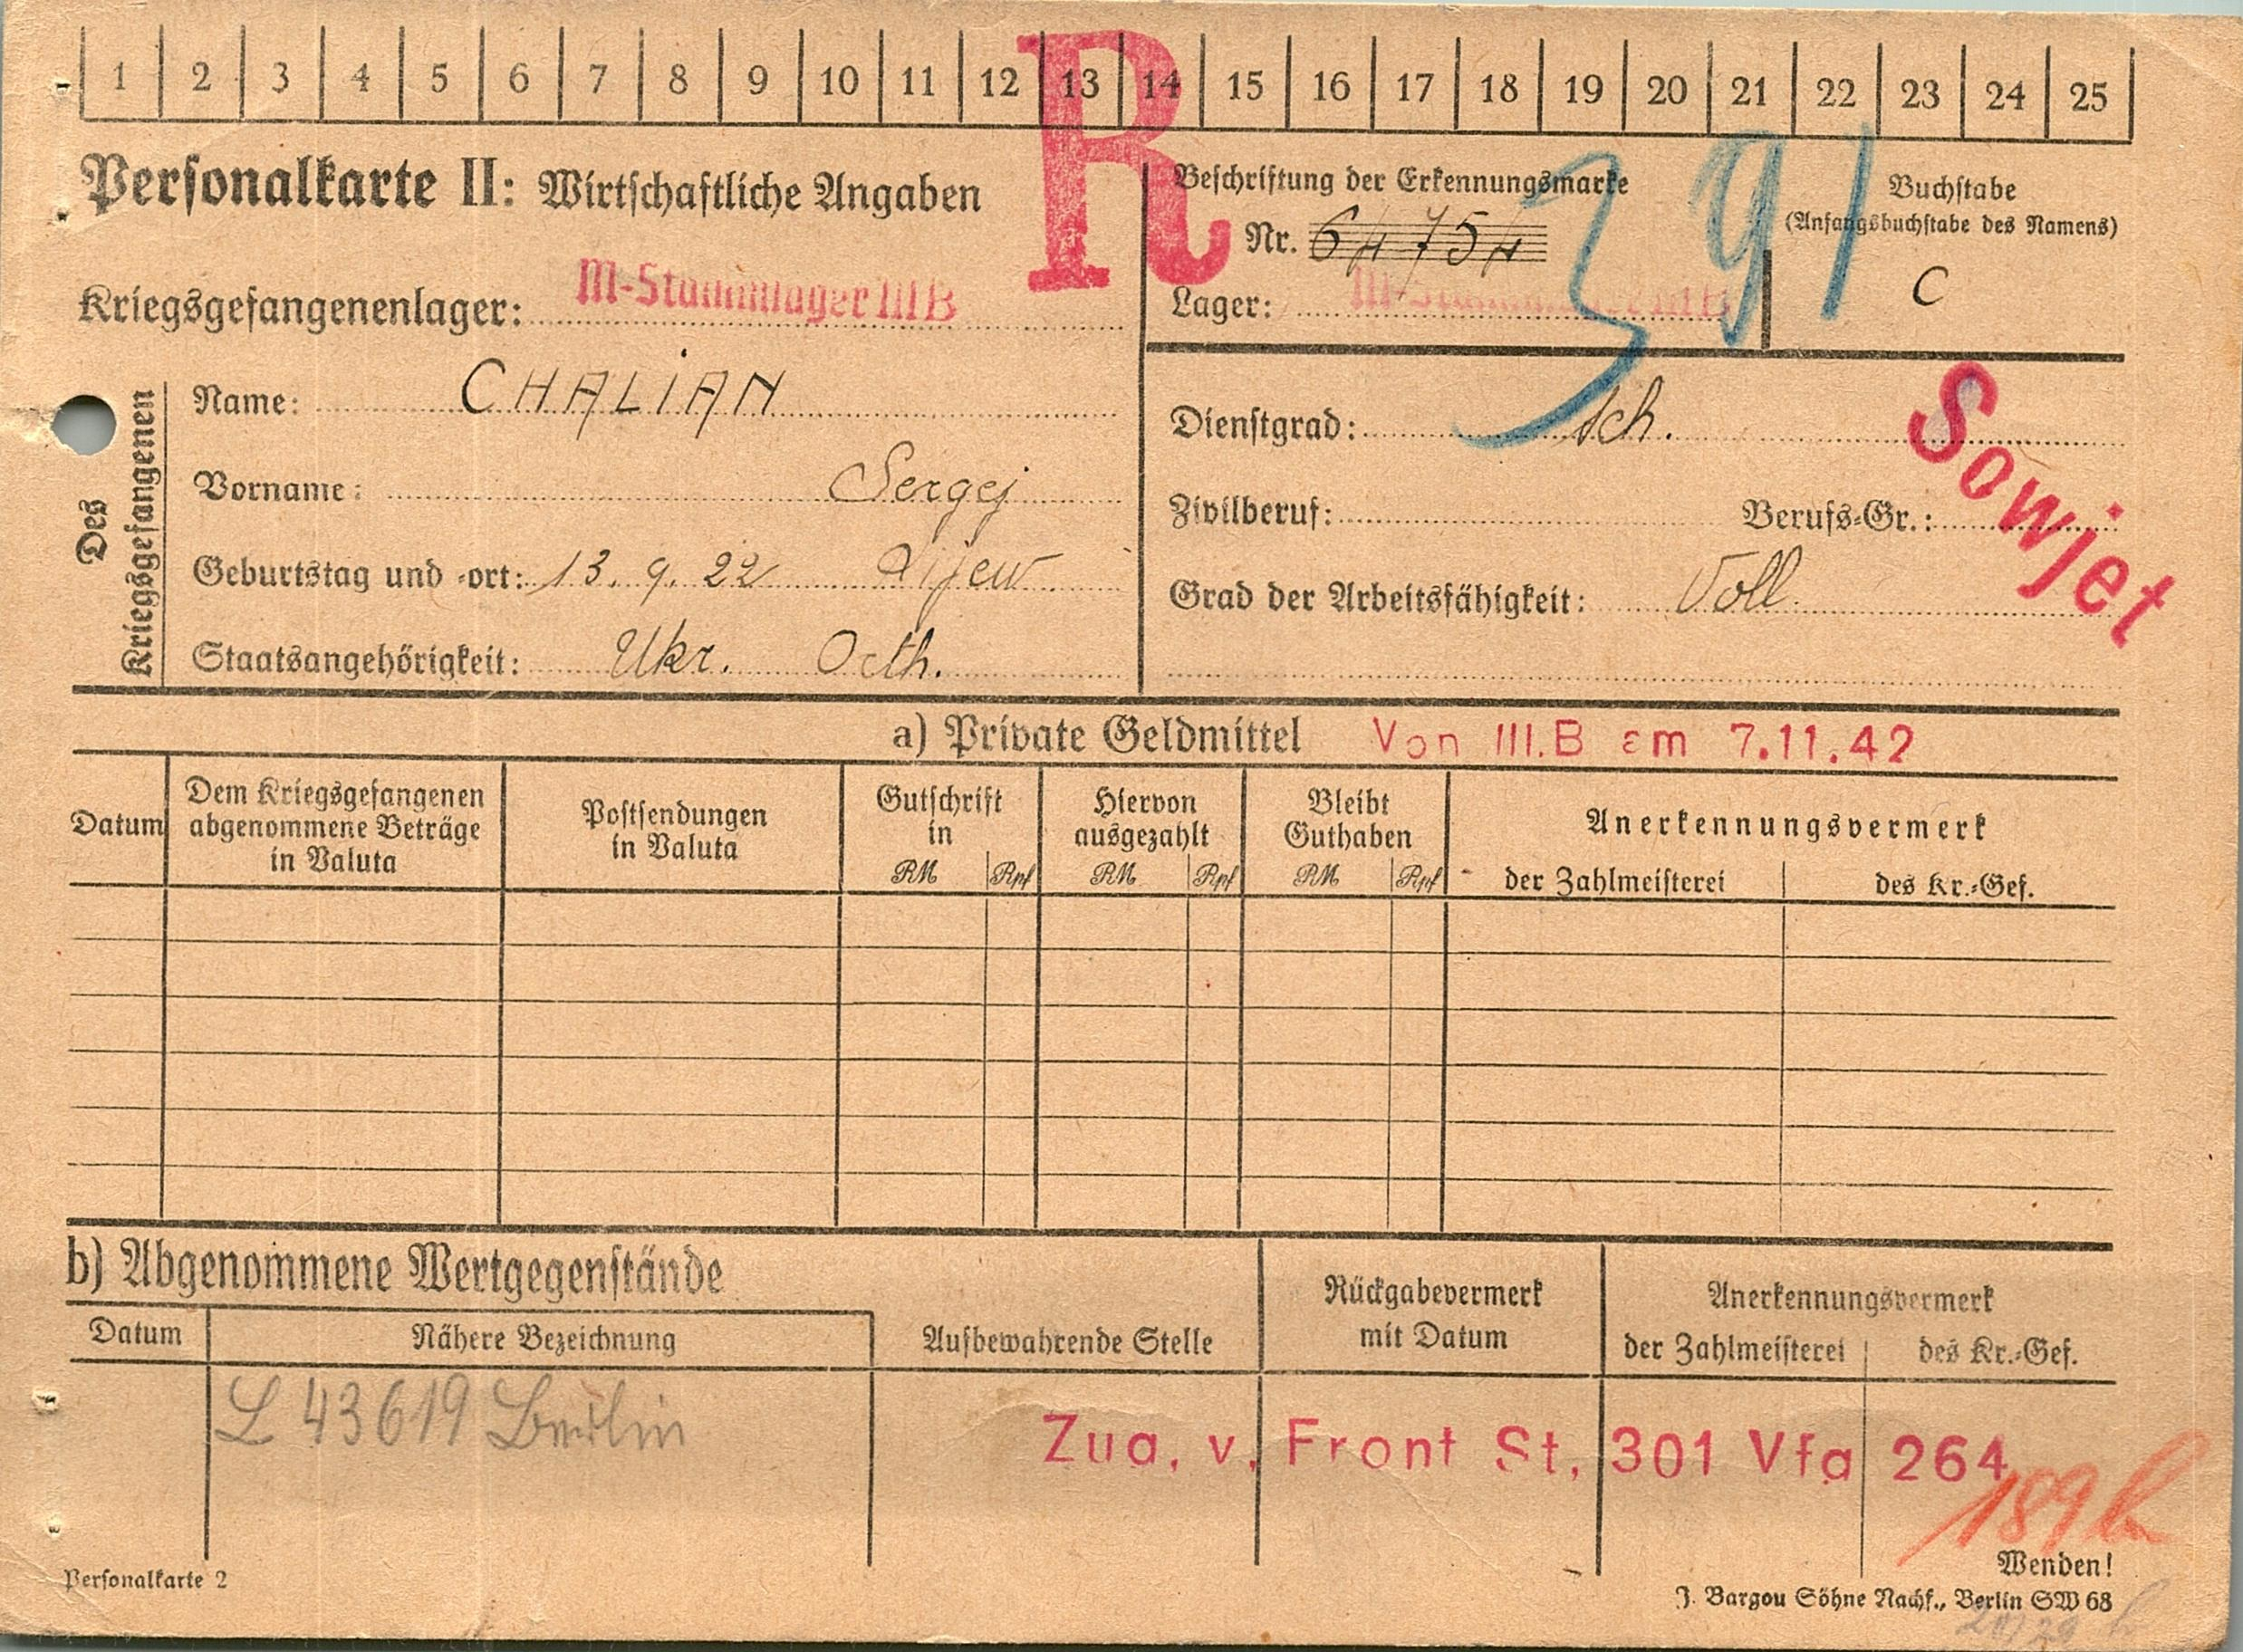 1 2 3 4 5 6 7 8 9 10 11 12 13 14 15 16 17 18 19 20 21 22 23 24 25
R
Personalkarte II: Wirtschaftliche Angaben
Kriegsgefangenenlager: M-Stammlager III B
Beschriftung der Erkennungsmarke
Nr. 64754
Lager: M-Stammlager III B
391
Buchstabe
(Anfangsbuchstabe des Namens)
C
Des Kriegsgefangenen
Name: CHALIAN
Vorname: Sergej
Geburtstag und -ort: 13. 9. 22 Kijew
Staatsangehörigkeit: Ukr. Orth.
Dienstgrad: Sch.
Zivilberuf: Berufs-Gr.:
Grad der Arbeitsfähigkeit: Voll
Sowjet
a) Private Geldmittel Von III.B am 7.11.42
Datum
Dem Kriegsgefangenen
abgenommene Beträge
in Valuta
Postsendungen
in Valuta
Gutschrift
in
RM Rpf
Hiervon
ausgezahlt
RM Rpf
Bleibt
Guthaben
RM Rpf
Anerkennungsvermerk
der Zahlmeisterei des Kr.-Gef.
b) Abgenommene Wertgegenstände
Datum Nähere Bezeichnung
Aufbewahrende Stelle
Rückgabevermerk
mit Datum
Anerkennungsvermerk
der Zahlmeisterei des Kr.-Gef.
L 43619 Berlin
Zug. v. Front St. 301 Vfg 264
189
Wenden!
Personalkarte 2
J. Bargou Söhne Nachf., Berlin SW 68